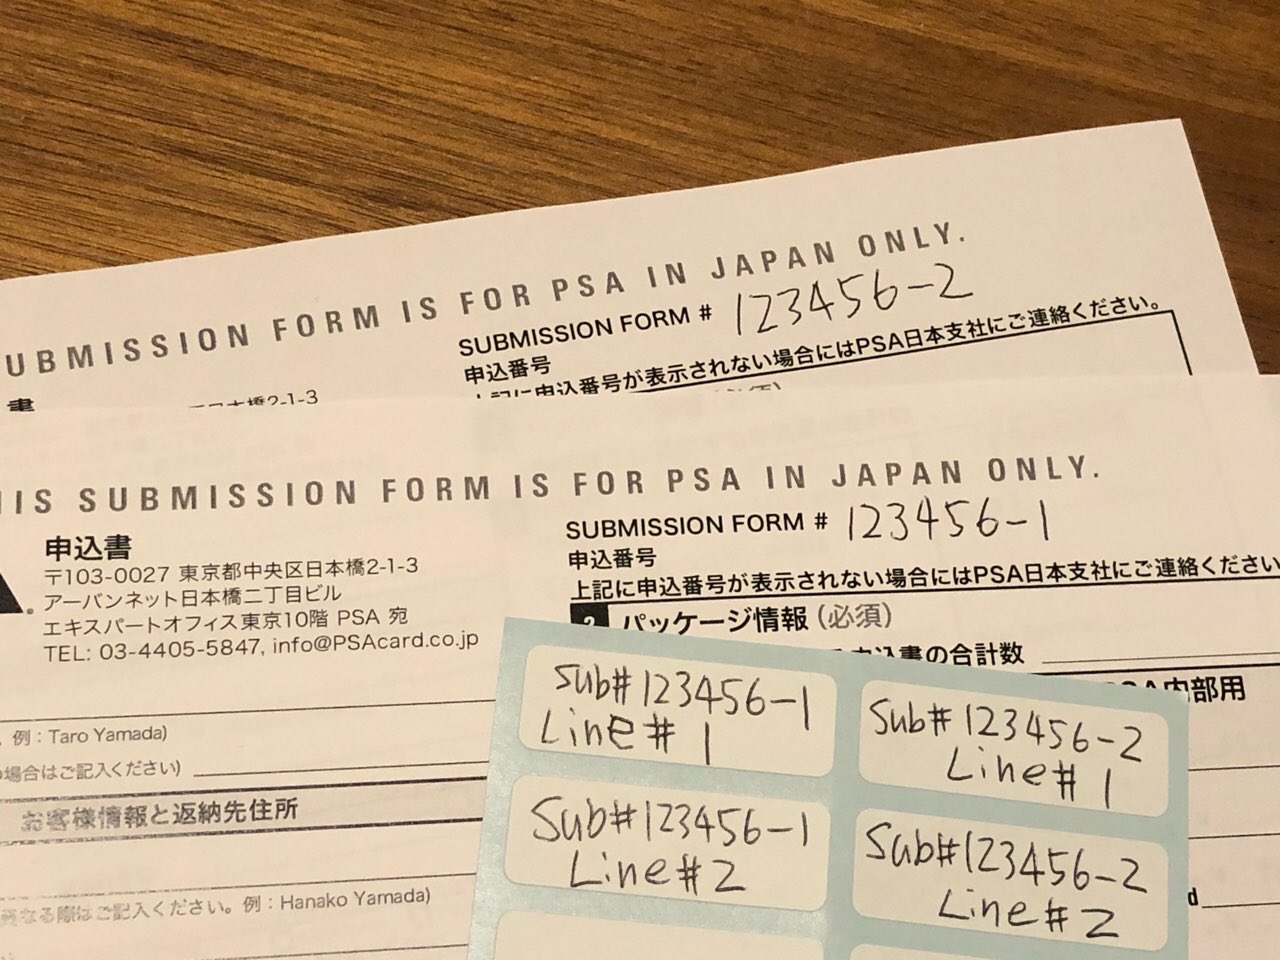 UBMISSION FORM IS FOR PSA IN JAPAN ONLY.
SUBMISSION FORM # 123456-2
申込番号
上記に申込番号が表示されない場合にはPSA日本支社にご連絡ください。
書
日本橋2-1-3
HIS SUBMISSION FORM IS FOR PSA IN JAPAN ONLY.
申込書
〒103-0027 東京都中央区日本橋2-1-3
アーバンネット日本橋二丁目ビル
エキスパートオフィス東京10階 PSA 宛
TEL: 03-4405-5847, info@PSAcard.co.jp
SUBMISSION FORM # 123456-1
申込番号
上記に申込番号が表示されない場合にはPSA日本支社にご連絡ください
2 パッケージ情報 (必須)
申込書の合計数
PSA内部用
例：Taro Yamada)
の場合はご記入ください)
お客様情報と返納先住所
異なる際はご記入ください。例：Hanako Yamada)
Sub# 123456-1
Line# 1
Sub# 123456-2
Line# 1
Sub# 123456-1
Line# 2
Sub# 123456-2
Line# 2